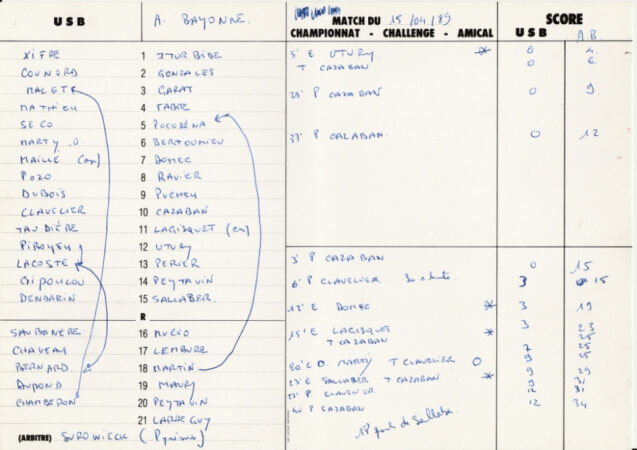 U S B A. BAYONNE. MATCH DU 15/04/89 SCORE
CHAMPIONNAT - CHALLENGE - AMICAL U S B A.B.
XIFRE 1 ITURBIDE
COUNORD 2 GONZALES
MALET 3 GARAT
MATHIEU 4 FABRE
SECO 5 POCORENA
MARTY .O. 6 BERTOUMIEU
MAILLE (cap) 7 DOMEC
POZO 8 RAVIER
DUBOIS 9 PUCHEU
CLAVELIER 10 CAZABAN
TAUDIÈRE 11 LAGISQUET (cap)
PIROYEU 12 UTURY
LACOSTE 13 PERIER
GIPOULOU 14 PEYTAVIN
DENDARIN 15 SALLABER.
R
SAUBANERE 16 NUEVO
CHAVEAU 17 LEMBURE
BERNARD 18 MARTIN
DUPOND 19 MAURY
CHAMBERON 20 PEYTAVIN
21 LARREGUY
(ARBITRE) SUROWIECK (Pyrénées)
5' E UTURY * 0 4
T CAZABAN 0 6
25' P CAZABAN 0 9
37' P CAZABAN. 0 12
3' P CAZABAN 0 15
6' P CLAVELIER 3 15
12' E DOMEC * 3 19
15' E LAGISQUET * 3 23
T CAZABAN 25
7 25
20' E O. MARTY T CLAVELIER O 9 25
23' E SALLABER T CAZABAN * 9 29
9 31
P CLAVELIER 12 31
P CAZABAN 12 34